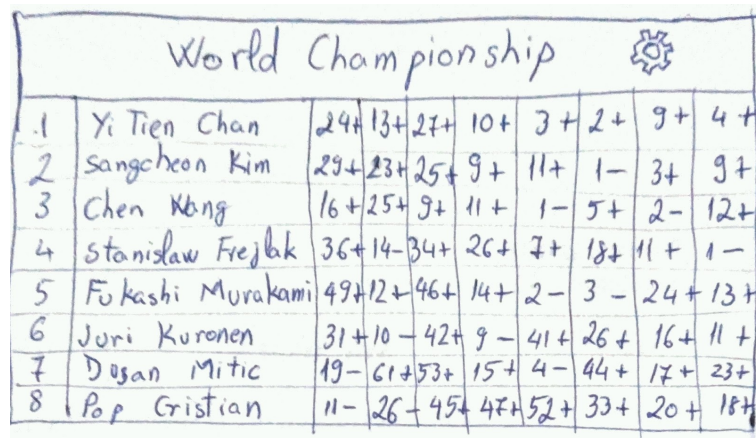 World Championship
1 Yi Tien Chan 24+ 13+ 27+ 10+ 3+ 2+ 9+ 4+
2 Sangcheon Kim 29+ 23+ 25+ 9+ 11+ 1- 3+ 9+
3 Chen Wang 16+ 25+ 9+ 11+ 1- 5+ 2- 12+
4 Stanislaw Frejlak 36+ 14- 34+ 26+ 7+ 18+ 11+ 1-
5 Fukashi Murakami 49+ 12+ 46+ 14+ 2- 3- 24+ 13+
6 Juri Kuronen 31+ 10- 42+ 9- 41+ 26+ 16+ 11+
7 Dusan Mitic 19- 61+ 53+ 15+ 4- 44+ 17+ 23+
8 Pop Cristian 11- 26- 45+ 47+ 52+ 33+ 20+ 18+